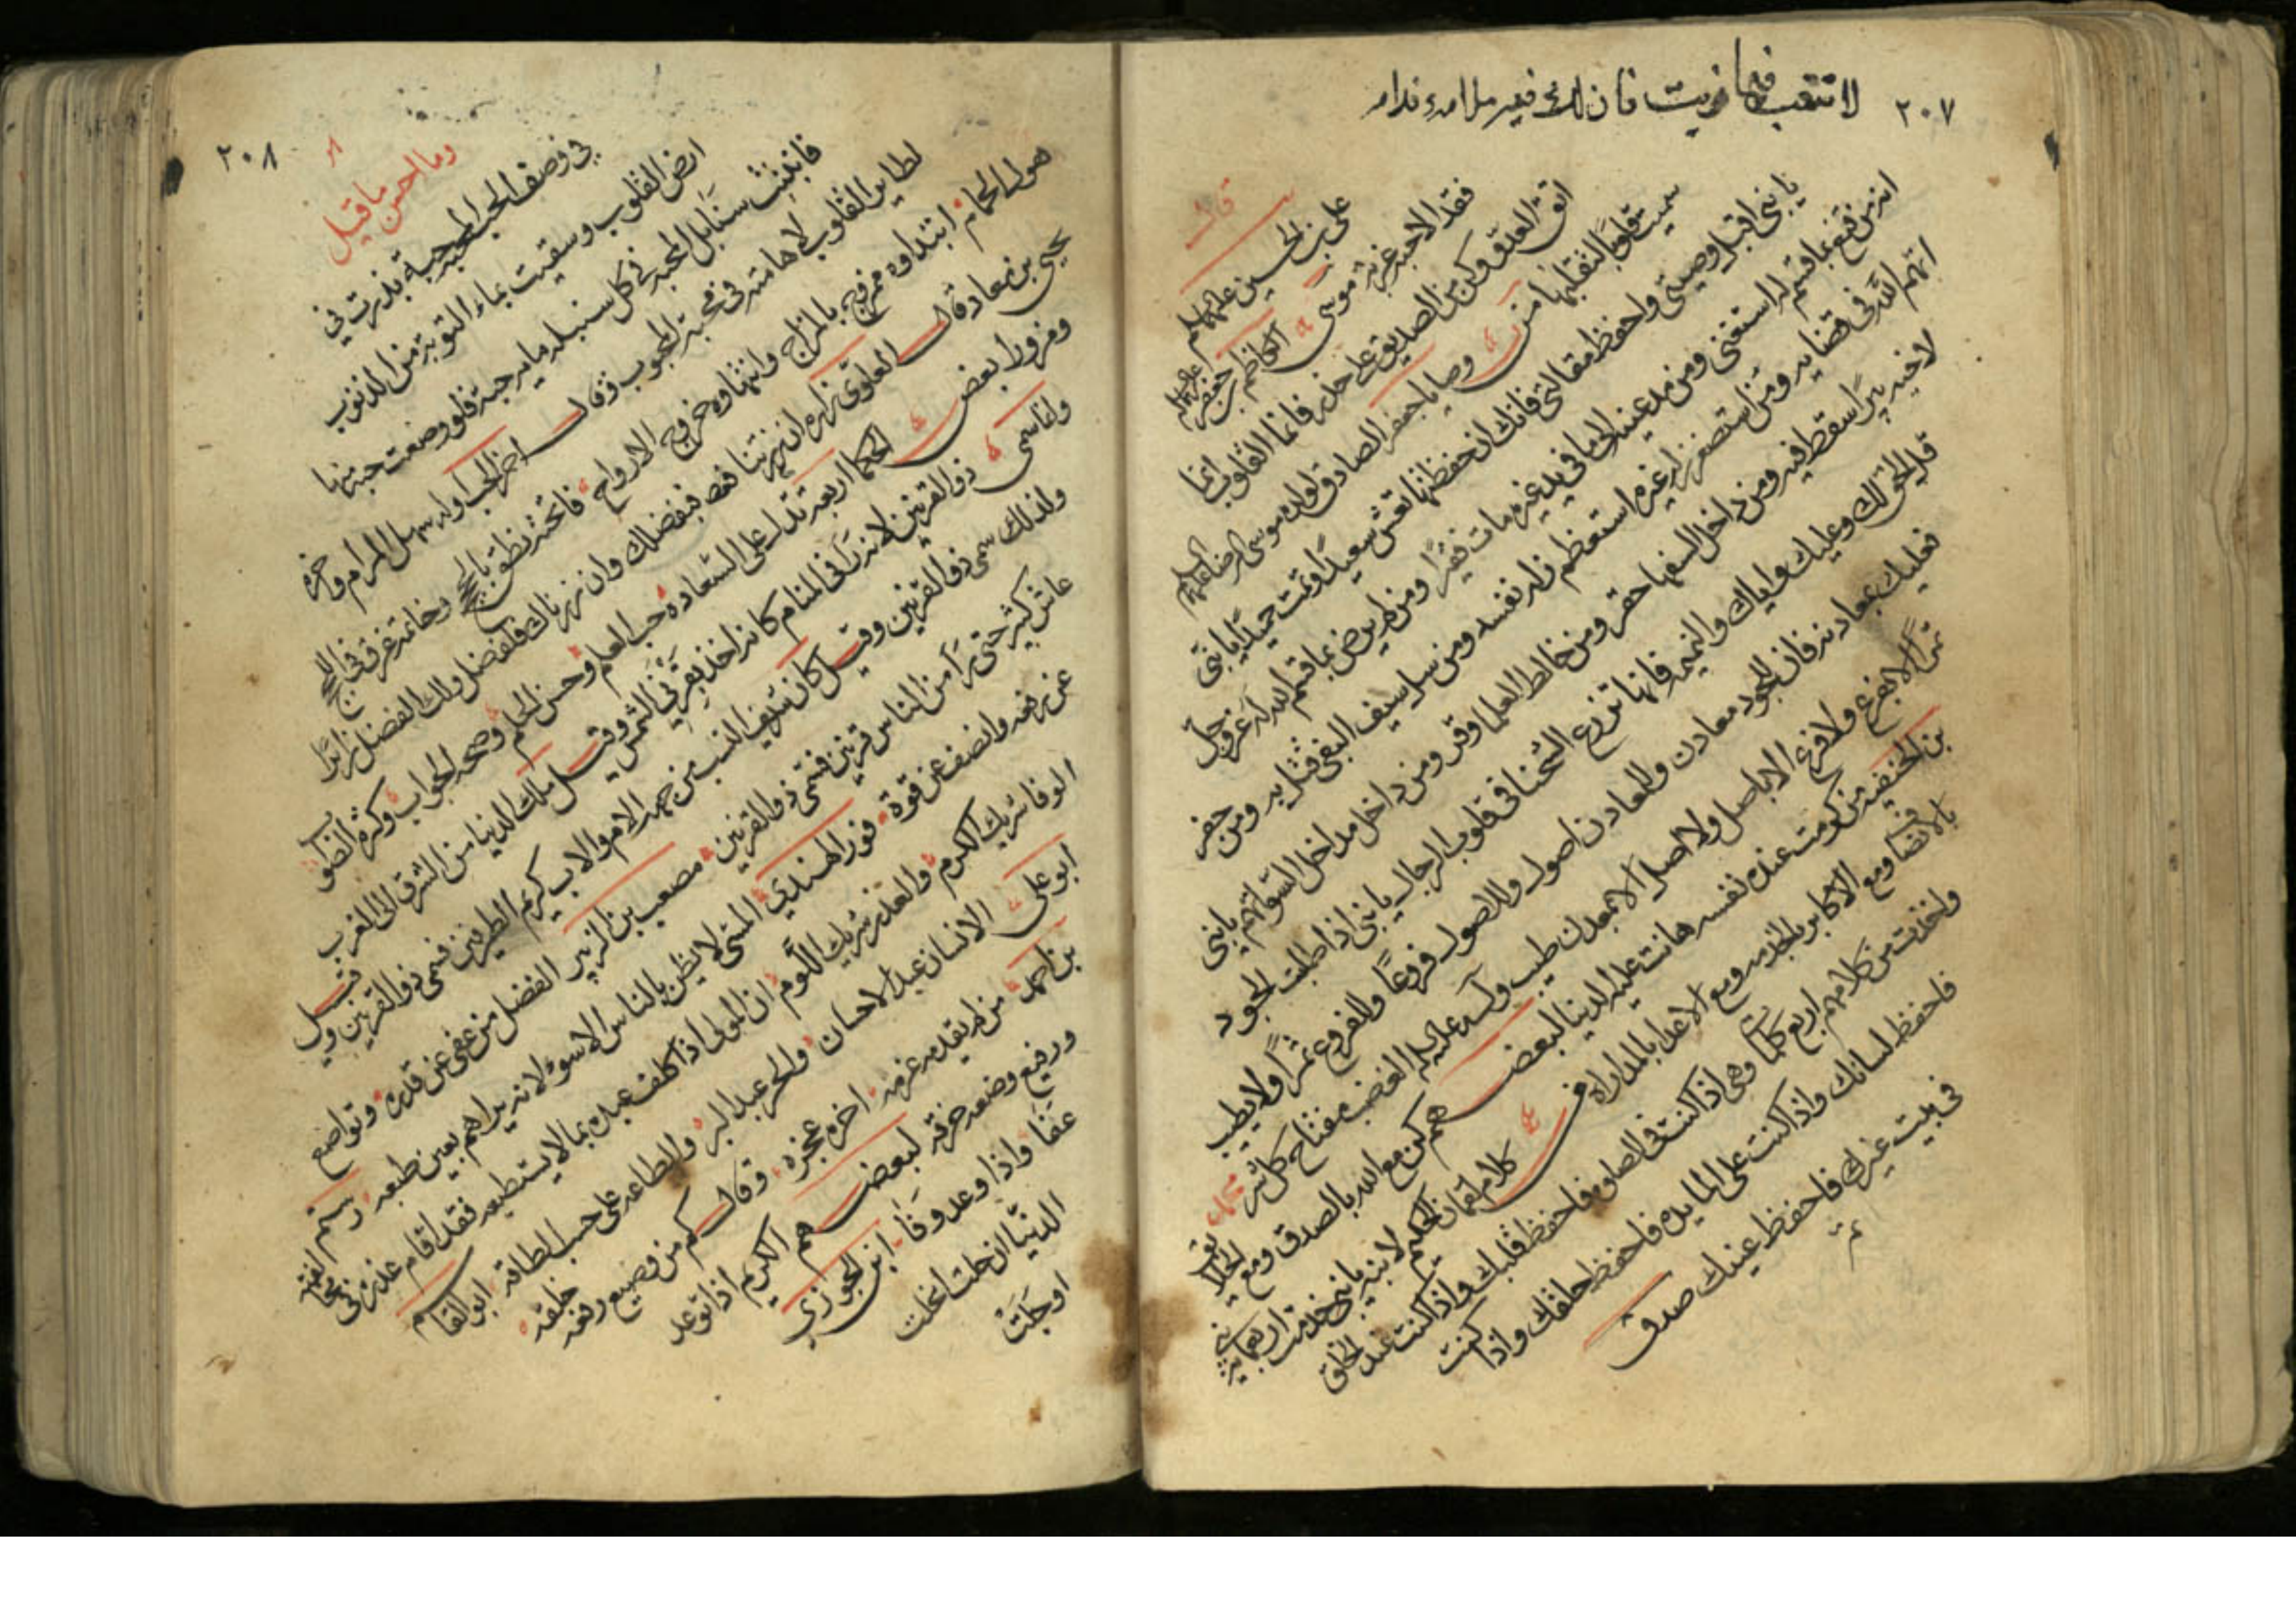 ٢٠٧
لا تتعب فيما نويت فان لك فيه ملامه و ندامه
قال
علي بن الحسين عليهما السلام
فقد الاحبه غربة موسى الكاظم بن جعفر عليهما السلام
اتق العدو وكن من الصديق على حذر فانما القلوب انما
سميت قلوبا لتقلبها من وصايا جعفر الصادق لولده موسى الرضا عليهم السلام
يا بني اقبل وصيتي واحفظ مقالتي فانك ان حفظتها تعش سعيدا وتمت حميدا يا بني
انه من قنع بما قسم له استغنى ومن مد عينه الى ما في يد غيره مات فقيرا ومن لم يرض بما قسم الله له عز وجل
اتهم الله في قضايه ومن استصغر زلة غيره استعظم زلة نفسه ومن سل سيف البغي قتل به ومن حفر
لاخيه بيرا سقط فيه ومن داخل السفها حقر ومن خالط العلما وقر ومن داخل مداخل السو اتهم يا بني
قل الحق لك وعليك واياك والنميمه فانها تزرع الشحنا في قلوب الرجال يا بني اذا طلبت الجود
فعليك بمعادنه فان للجود معادن وللمعادن اصول وللاصول فروعا وللفروع ثمرا ولا يطيب
ثمر الا بفرع ولا فرع الا باصل ولا اصل الا بمعدن طيب وله عليه السلام الغضب مفتاح كل شر محمد
بن الحنفيه من كرمت عنده نفسه هانت عليه الدنيا لبعضهم كن مع الله بالصدق ومع الخلق
بالانصاف ومع الاكابر بالخدمه ومع الاعدا بالمداراه من كلام لقمان الحكيم لابنه يا بني خدمت اربعماية نبي
واخذت من كلامهم اربع كلمات وهي اذا كنت في الصلوة فاحفظ قلبك واذا كنت عند الخلق
فاحفظ لسانك واذا كنت على المايده فاحفظ حلقك واذا كنت
في بيت غيرك فاحفظ عينك صدق
٢٠٨
وما احسن ما قيل
في وصف الحب المحبة حبة بذرت في
ارض القلوب وسقيت بماء التوبة من الذنوب
فانبتت سنابل المحبه في كل سنبله مايه حبة فلو وضعت حبة منها
لطاير القلوب لاهامته في محبة المحبوب وقال اخر الحب اوله سهل المرام واخره
هول الحمام ابتداوه ممزوج بالمزاج وانتهاوه خروج الارواح فاتحته نطق بالحجج وخاتمته غرق في اللجج
يحيى بن معاذ قال لعلوي زاره ان زرتنا فبفضلك وان زرناك فلفضلك ولك الفضل زايرا
ومزورا بعض الحكما اربعة تدل على السعاده حب العلم وحسن الحلم وصحة الجواب وكثرة الصواب
وانما سمي ذو القرنين لانه راى في المنام كانه اخذ بقرني الشمس وقيل ملك الدنيا من الشرق الى الغرب
ولذلك سمي ذو القرنين وقيل كان شريف النسب من جهة الام والاب كريم الطرفين فسمي ذو القرنين وقيل
عاش كثير حتى راى من الناس قرنين فسمي ذو القرنين مصعب بن الزبير الفضل من عفى عن قدرة وتواضع
عن رفعه وانصف عن قوة فور الهندي المسي لا يظن بالناس الا سو لانه يراهم بعين طبعه رستم
الوفا شريك الكرم والغدر شريك اللوم ان المولى اذا كلف عبده بما لا يستطيعه فقد اقام عذره في
ابو علي الانسان عبد الاحسان والحر عبد البر والطاعه على حسب الطاقه ابو القاسم
بن احمد من لم يقدمه عزمه اخره عجزه وقال كم من وضيع رفعه خلقه
ورفيع وضعه خرقه لبعضهم الكريم اذا توعد
عفا واذا وعد وفا ابن الجوزي
الدنيا ان حلت انحلت
او جلت